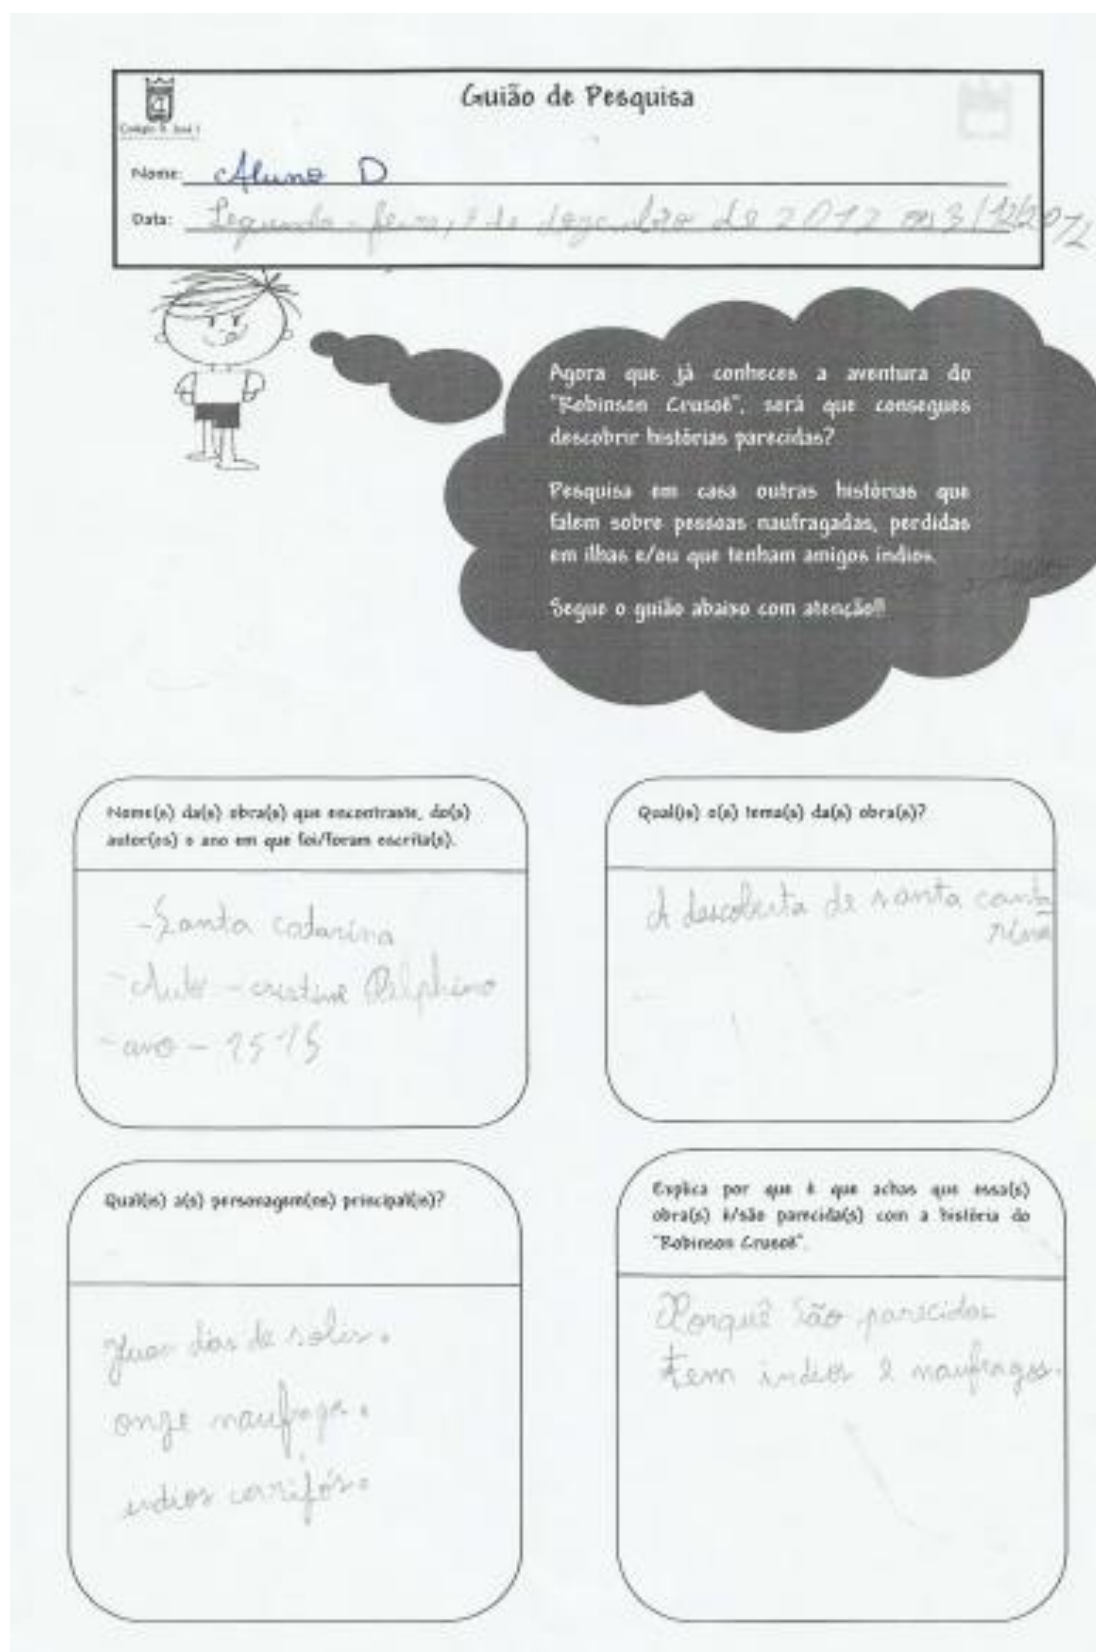 Guião de Pesquisa
Colégio D. José I
Nome: Aluno D
Data: Segunda-feira, de dezembro de 2012 3/12/2012
Agora que já conheces a aventura do
"Robinson Crusoé", será que consegues
descobrir histórias parecidas?
Pesquisa em casa outras histórias que
falem sobre pessoas naufragadas, perdidas
em ilhas e/ou que tenham amigos índios.
Segue o guião abaixo com atenção!!
Nome(s) da(s) obra(s) que encontraste, do(s)
autor(es) e ano em que foi/foram escrita(s).
-Santa catarina
- Auto - cristine Delphino
- ano - 1515
Qual(is) o(s) tema(s) da(s) obra(s)?
A descoberta de santa canta
rina
Qual(is) a(s) personagem(ns) principal(is)?
dias de solis.
onze naufrago.
indios carrifós.
Explica por que é que achas que essa(s)
obra(s) é/são parecida(s) com a história do
"Robinson Crusoé".
Porquê são parecidas
tem indios e naufragos.